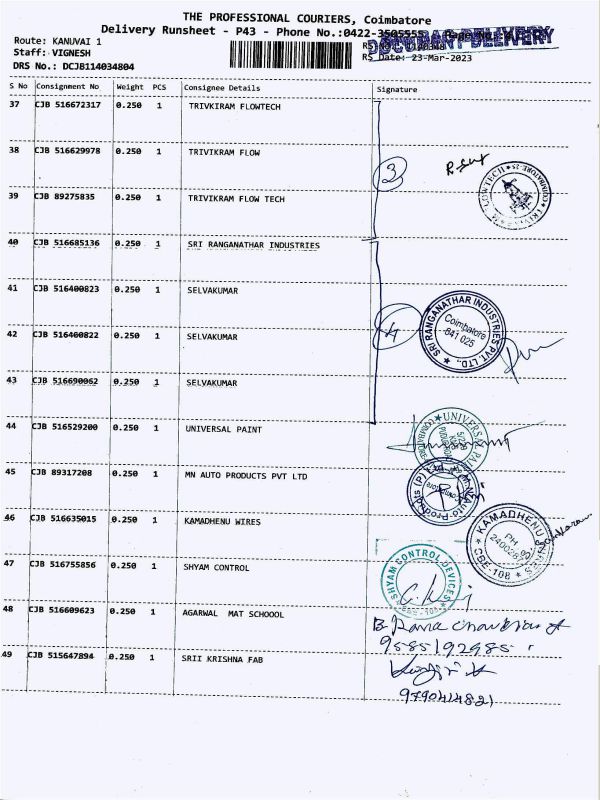 THE PROFESSIONAL COURIERS, Coimbatore
Delivery Runsheet - P43 - Phone No.:0422-3505555
DOCUMENT DELIVERY
Route: KANUVAI 1
Staff: VIGNESH
RS Date: 23-Mar-2023
DRS No.: DCJB114034804
S No Consignment No Weight PCS Consignee Details Signature
37 CJB 516672317 0.250 1 TRIVKIRAM FLOWTECH
38 CJB 516629978 0.250 1 TRIVIKRAM FLOW
3
39 CJB 89275835 0.250 1 TRIVIKRAM FLOW TECH
40 CJB 516685136 0.250 1 SRI RANGANATHAR INDUSTRIES
41 CJB 516400823 0.250 1 SELVAKUMAR
SRI RANGANATHAR INDUSTRIES PVT. LTD.
Coimbatore
641 025
4
42 CJB 516400822 0.250 1 SELVAKUMAR
43 CJB 516690062 0.250 1 SELVAKUMAR
44 CJB 516529200 0.250 1 UNIVERSAL PAINT
45 CJB 89317208 0.250 1 MN AUTO PRODUCTS PVT LTD
46 CJB 516635015 0.250 1 KAMADHENU WIRES
KAMADHENU WIRES
CBE-108
47 CJB 516755856 0.250 1 SHYAM CONTROL
SHYAM CONTROL DEVICES
48 CJB 516609623 0.250 1 AGARWAL MAT SCHOOOL
9585192985
49 CJB 515647894 0.250 1 SRII KRISHNA FAB
9790414821